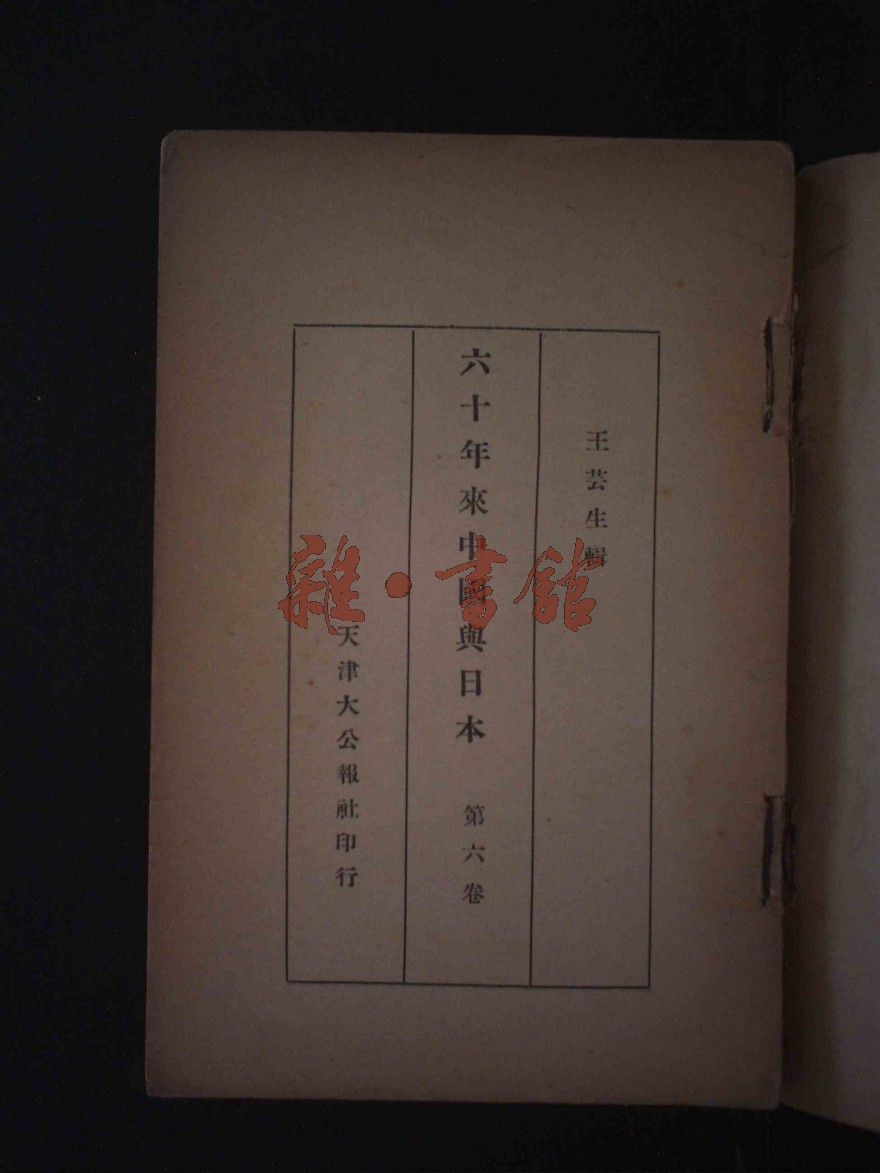 王芸生輯
六十年來中國與日本 第六卷
天津大公報社印行
雜·書館